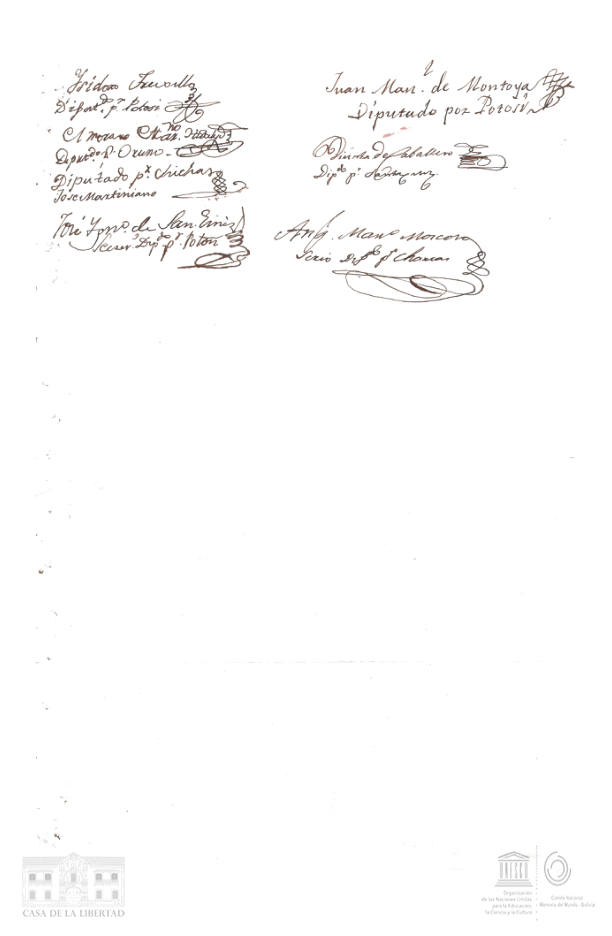 Isidoro Trujillo
Diput.do p.r Potosi
Man.no
Diput.do p.r Oruro
Diputado p.r Chichas
Jose Martiniano
José Ygn.o de San-Ginés
Secret.o Dip.do p.r Potosi
Juan Man.l de Montoya
Diputado por Potosi
Caballero
Dip.do p.r Santa Cruz
Ang. Man.o Moscoso
Srio Dip.do p.r Charcas
CASA DE LA LIBERTAD
UNESCO
Organización
de las Naciones Unidas
para la Educación,
la Ciencia y la Cultura
Comité Nacional
Memoria del Mundo - Bolivia